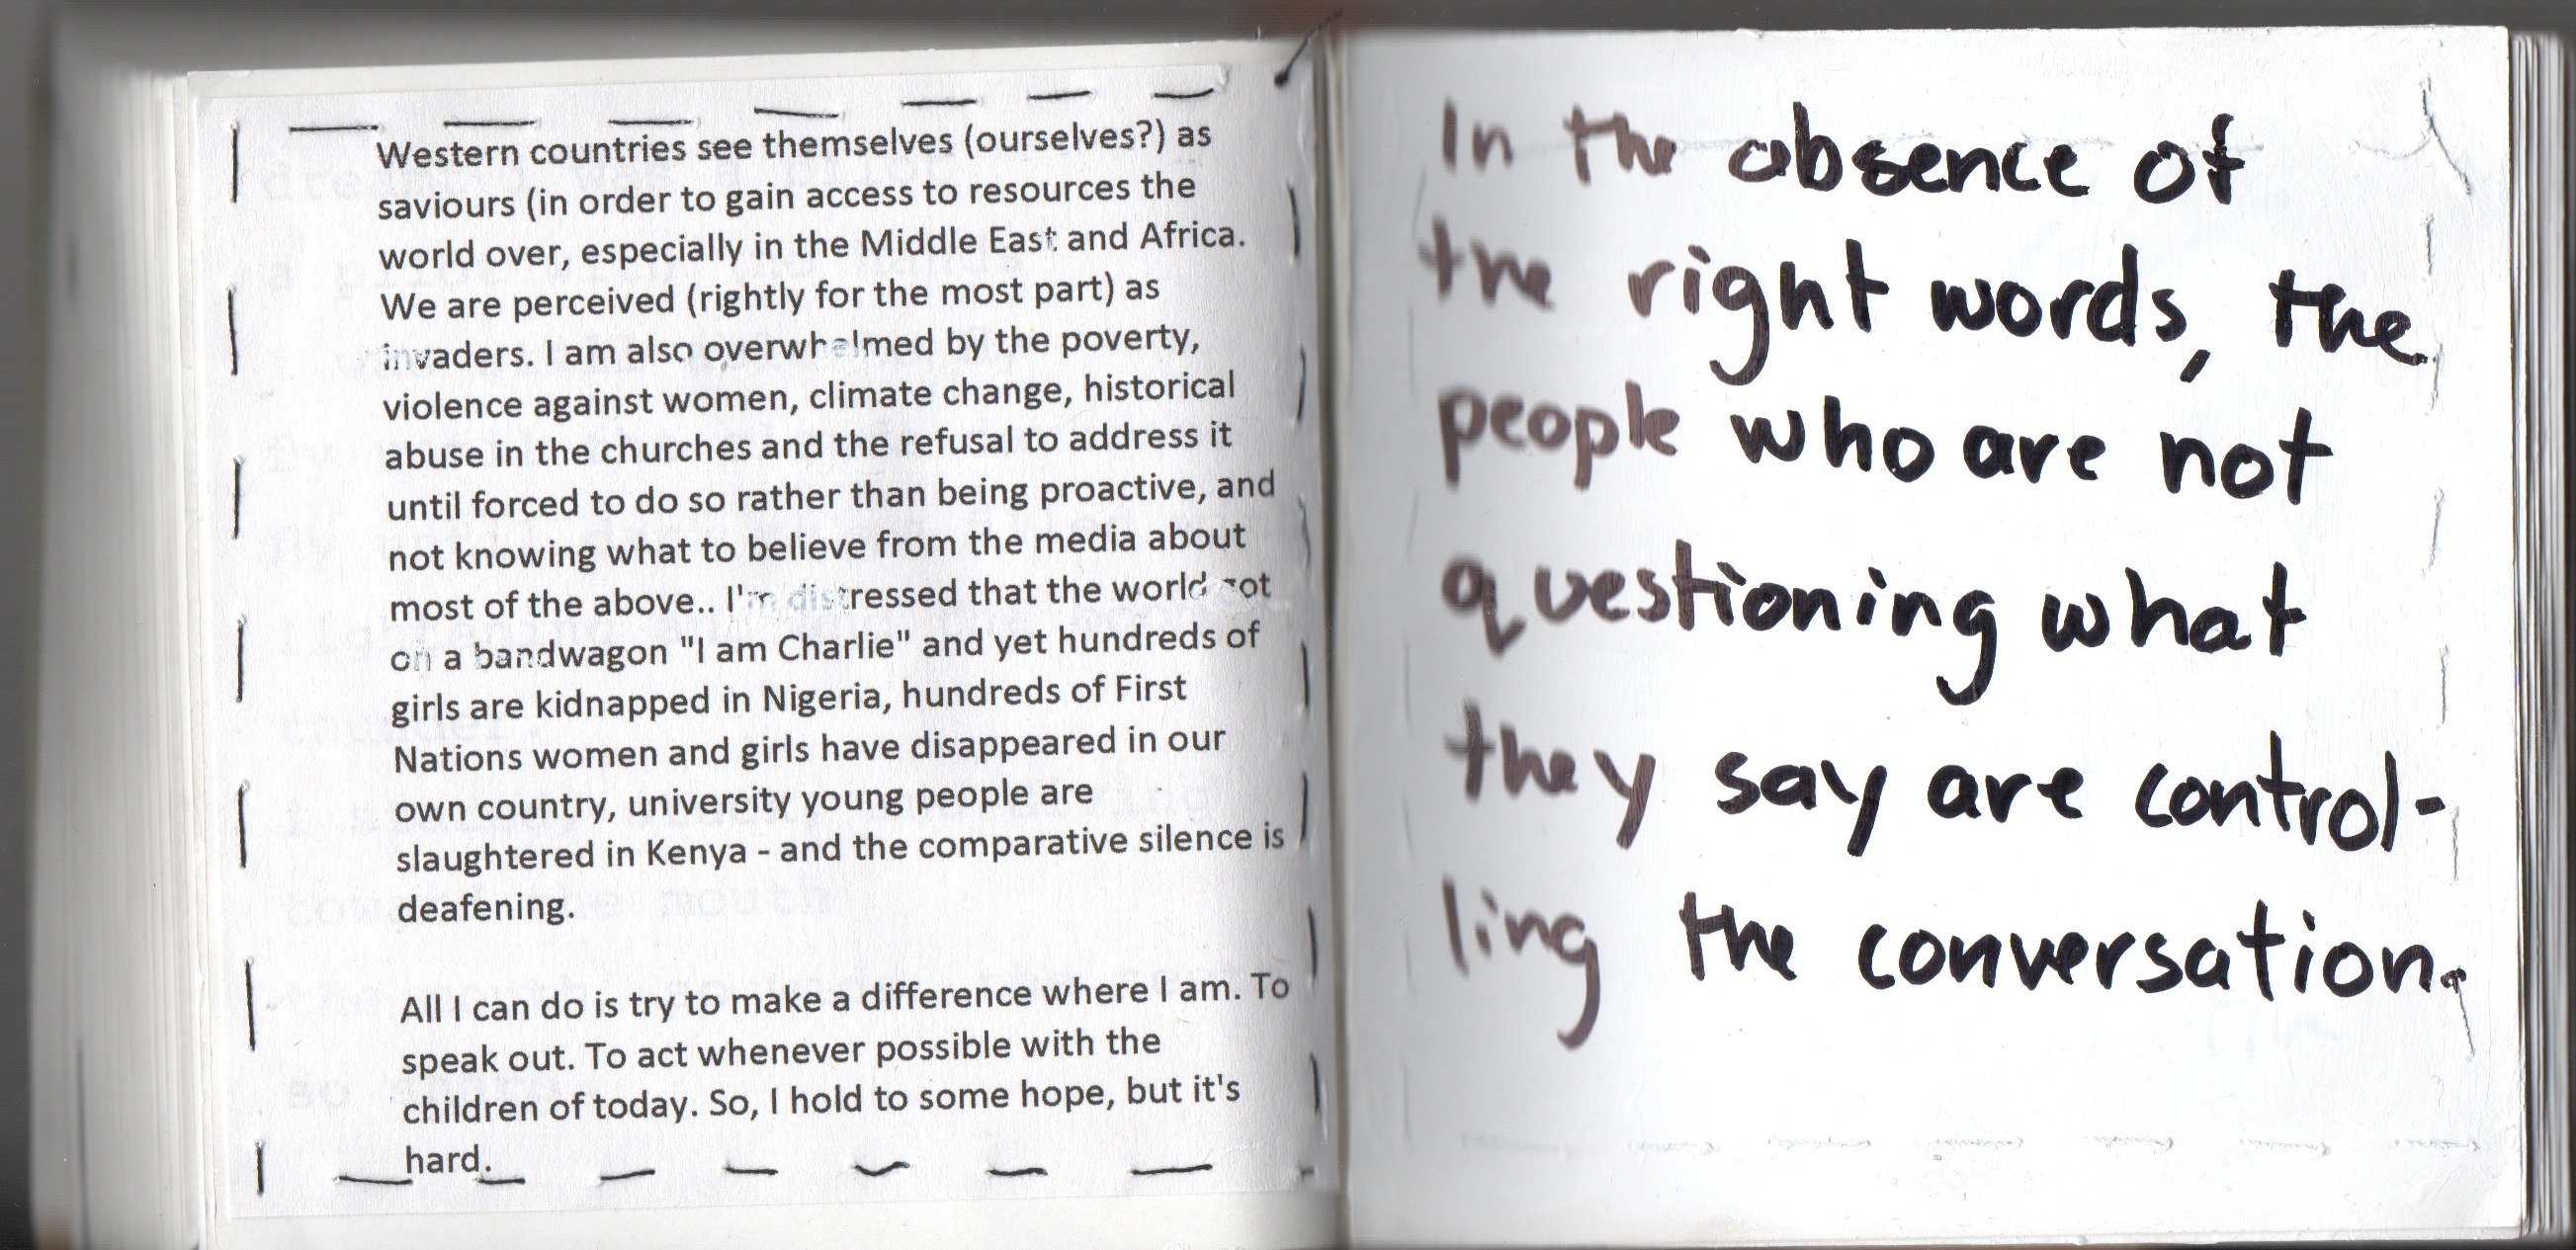 Western countries see themselves (ourselves?) as
saviours (in order to gain access to resources the
world over, especially in the Middle East and Africa.
We are perceived (rightly for the most part) as
invaders. I am also overwhelmed by the poverty,
violence against women, climate change, historical
abuse in the churches and the refusal to address it
until forced to do so rather than being proactive, and
not knowing what to believe from the media about
most of the above.. I'm distressed that the world got
on a bandwagon "I am Charlie" and yet hundreds of
girls are kidnapped in Nigeria, hundreds of First
Nations women and girls have disappeared in our
own country, university young people are
slaughtered in Kenya - and the comparative silence is
deafening.
All I can do is try to make a difference where I am. To
speak out. To act whenever possible with the
children of today. So, I hold to some hope, but it's
hard.
In the absence of
the right words, the
people who are not
questioning what
they say are control-
ling the conversation.